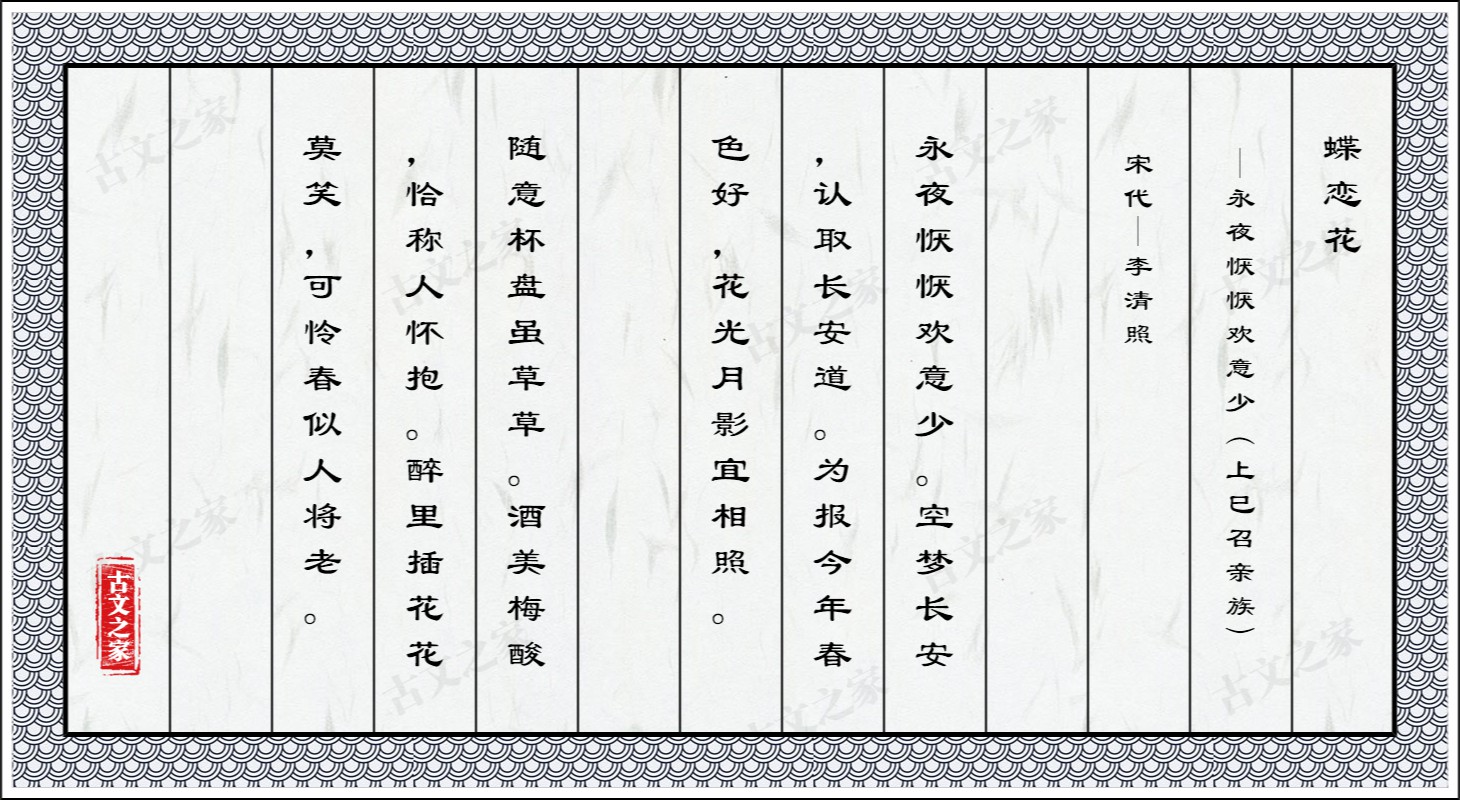 蝶恋花
—永夜恹恹欢意少（上巳召亲族）
宋代—李清照
永夜恹恹欢意少。空梦长安
，认取长安道。为报今年春
色好，花光月影宜相照。
随意杯盘虽草草。酒美梅酸
，恰称人怀抱。醉里插花花
莫笑，可怜春似人将老。
古文之家